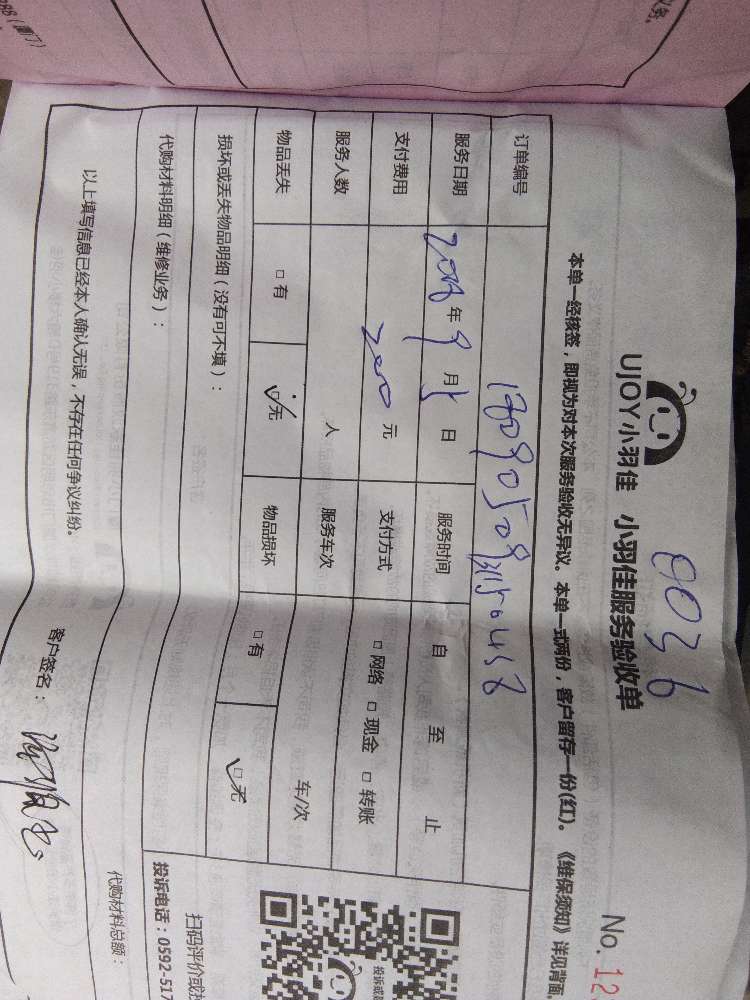 288（厦门）
义务。
0036
No. 12
UJOY小羽佳 小羽佳服务验收单
本单一经核签，即视为对本次服务验收无异议。本单一式两份，客户留存一份(红)。《维保须知》详见背面
订单编号
服务日期 年 9 月 日 服务时间 自 至 止
支付费用 200 元 支付方式 □ 网络 □ 现金 □ 转账
服务人数 人 服务车次 车/次
物品丢失 □ 有 □ 无 物品损坏 □ 有 □ 无
损坏或丢失物品明细（没有可不填）：
代购材料明细（维修业务）：
代购材料总额：
以上填写信息已经本人确认无误，不存在任何争议纠纷。
客户签名：
扫码评价或投
投诉电话：0592-517